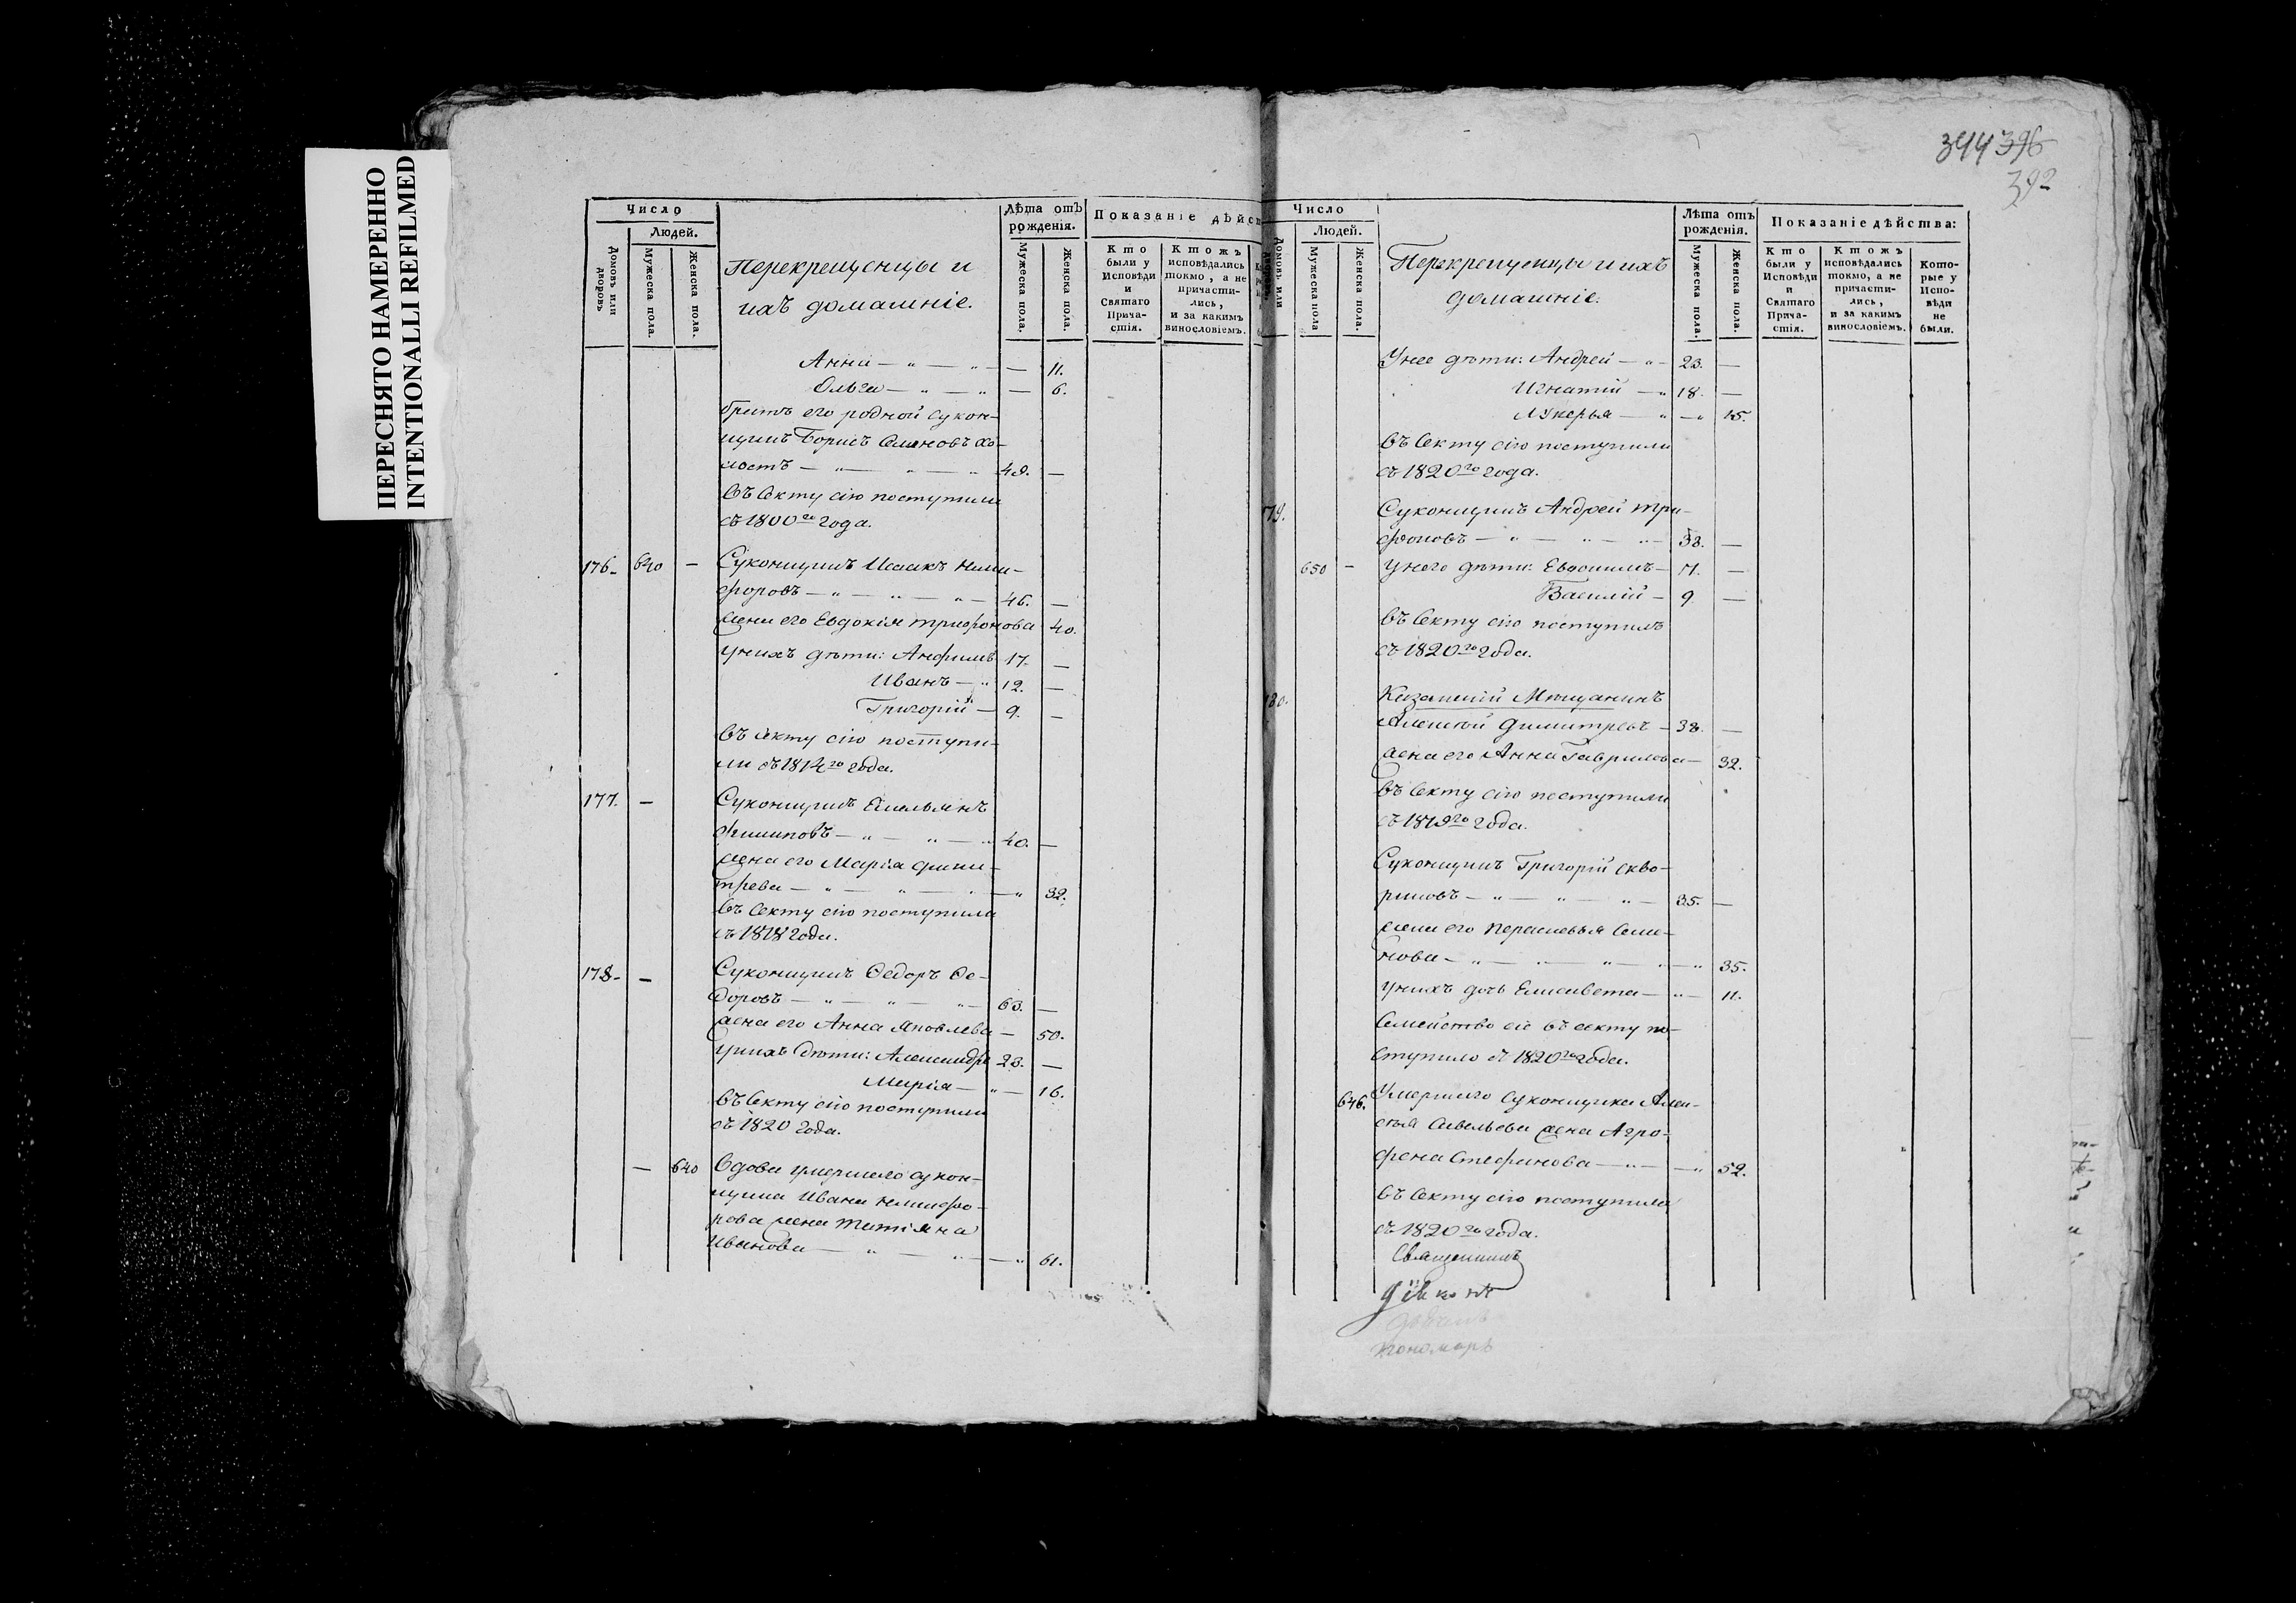 ПЕРЕСНЯТО НАМЕРЕННО
INTENTIONALLI REFILMED
344 396
392
Число
Людей.
Домовъ или дворовъ
Мужеска пола.
Женска пола.
Перекрещенцы и
ихъ домашніе.
Лѣта отъ
рожденія.
Мужеска пола.
Женска пола.
Показаніе дѣйс
Кто
были у
Исповѣди
и
Святаго
Прича-
стія.
Ктожъ
исповѣдались
токмо, а не
причасти-
лись,
и за какимъ
винословіемъ.
Анна — „ — „ — — 11.
Ольга — „ — „ — 6.
братъ его родной сукон-
щикъ Борисъ Семеновъ хо-
лостъ — „ — „ — „ 49. —
въ секту сію поступили
съ 1800го года.
176. 640 — Суконщикъ Исаакъ Ники-
форовъ — „ — „ — „ — 46. —
жена его Евдокія Трифонова 40.
у нихъ дѣти: Анфимъ 17. —
Иванъ — „ 12. —
Григорій — 9. —
въ секту сію поступи-
ли съ 1814го года.
177. — Суконщикъ Емельянъ
Филиповъ — „ — „ — „ 40. —
жена его Марія Дими-
трева — „ — „ — „ — „ 32.
въ секту сію поступили
съ 1818 года.
178. — Суконщикъ Федоръ Фе-
доровъ — „ — „ — „ — 63. —
жена его Анна Яковлева — 50.
у нихъ дѣти: Александръ 23. —
Марія — „ — 16.
въ секту сію поступили
съ 1820 года.
— 640 Вдова умершаго сукон-
щика Ивана Никифо-
рова жена Татіяна
Иванова — „ — „ — „ 61.
Число
Людей.
Домовъ или дворовъ.
Мужеска пола
Женска пола.
Перекрещенцы и ихъ
домашніе.
Лѣта отъ
рожденія.
Мужеска пола.
Женска пола.
Показаніе дѣйства:
Кто
были у
Исповѣди
и
Святаго
Прича-
стія.
Ктожъ
исповѣдались
токмо, а не
причасти-
лись,
и за какимъ
винословіемъ.
Кото-
рые у
Испо-
вѣди
не
были.
У нее дѣти: Андрей — „ — 23. —
Игнатій — „ 18. —
Лукерья — „ — „ 15.
въ секту сію поступили
съ 1820го года.
79. Суконщикъ Андрей Три-
фоновъ — „ — „ — „ — 38. —
650 — у него дѣти: Евдокимъ — 11. —
Василій — 9 —
въ секту сію поступилъ
съ 1820го года.
180. Казанскій Мѣщанинъ
Алексѣй Димитревъ — 38. —
жена его Анна Гаврилова — 32.
въ секту сію поступили
съ 1819го года.
Суконщикъ Григорій Скво-
рцовъ — „ — „ — „ — 35. —
жена его Парасковья Семе-
нова — „ — „ — „ — „ 35.
у нихъ дочь Елисавета — „ — 11.
Семейство сіе въ секту по-
ступило съ 1820го года.
646. Умершаго суконщика Алек-
сѣя Савельева жена Агро-
фена Стефанова — „ — — „ 52.
въ секту сію поступила
съ 1820го года.
Священникъ
Діаконъ
дьячекъ
пономарь